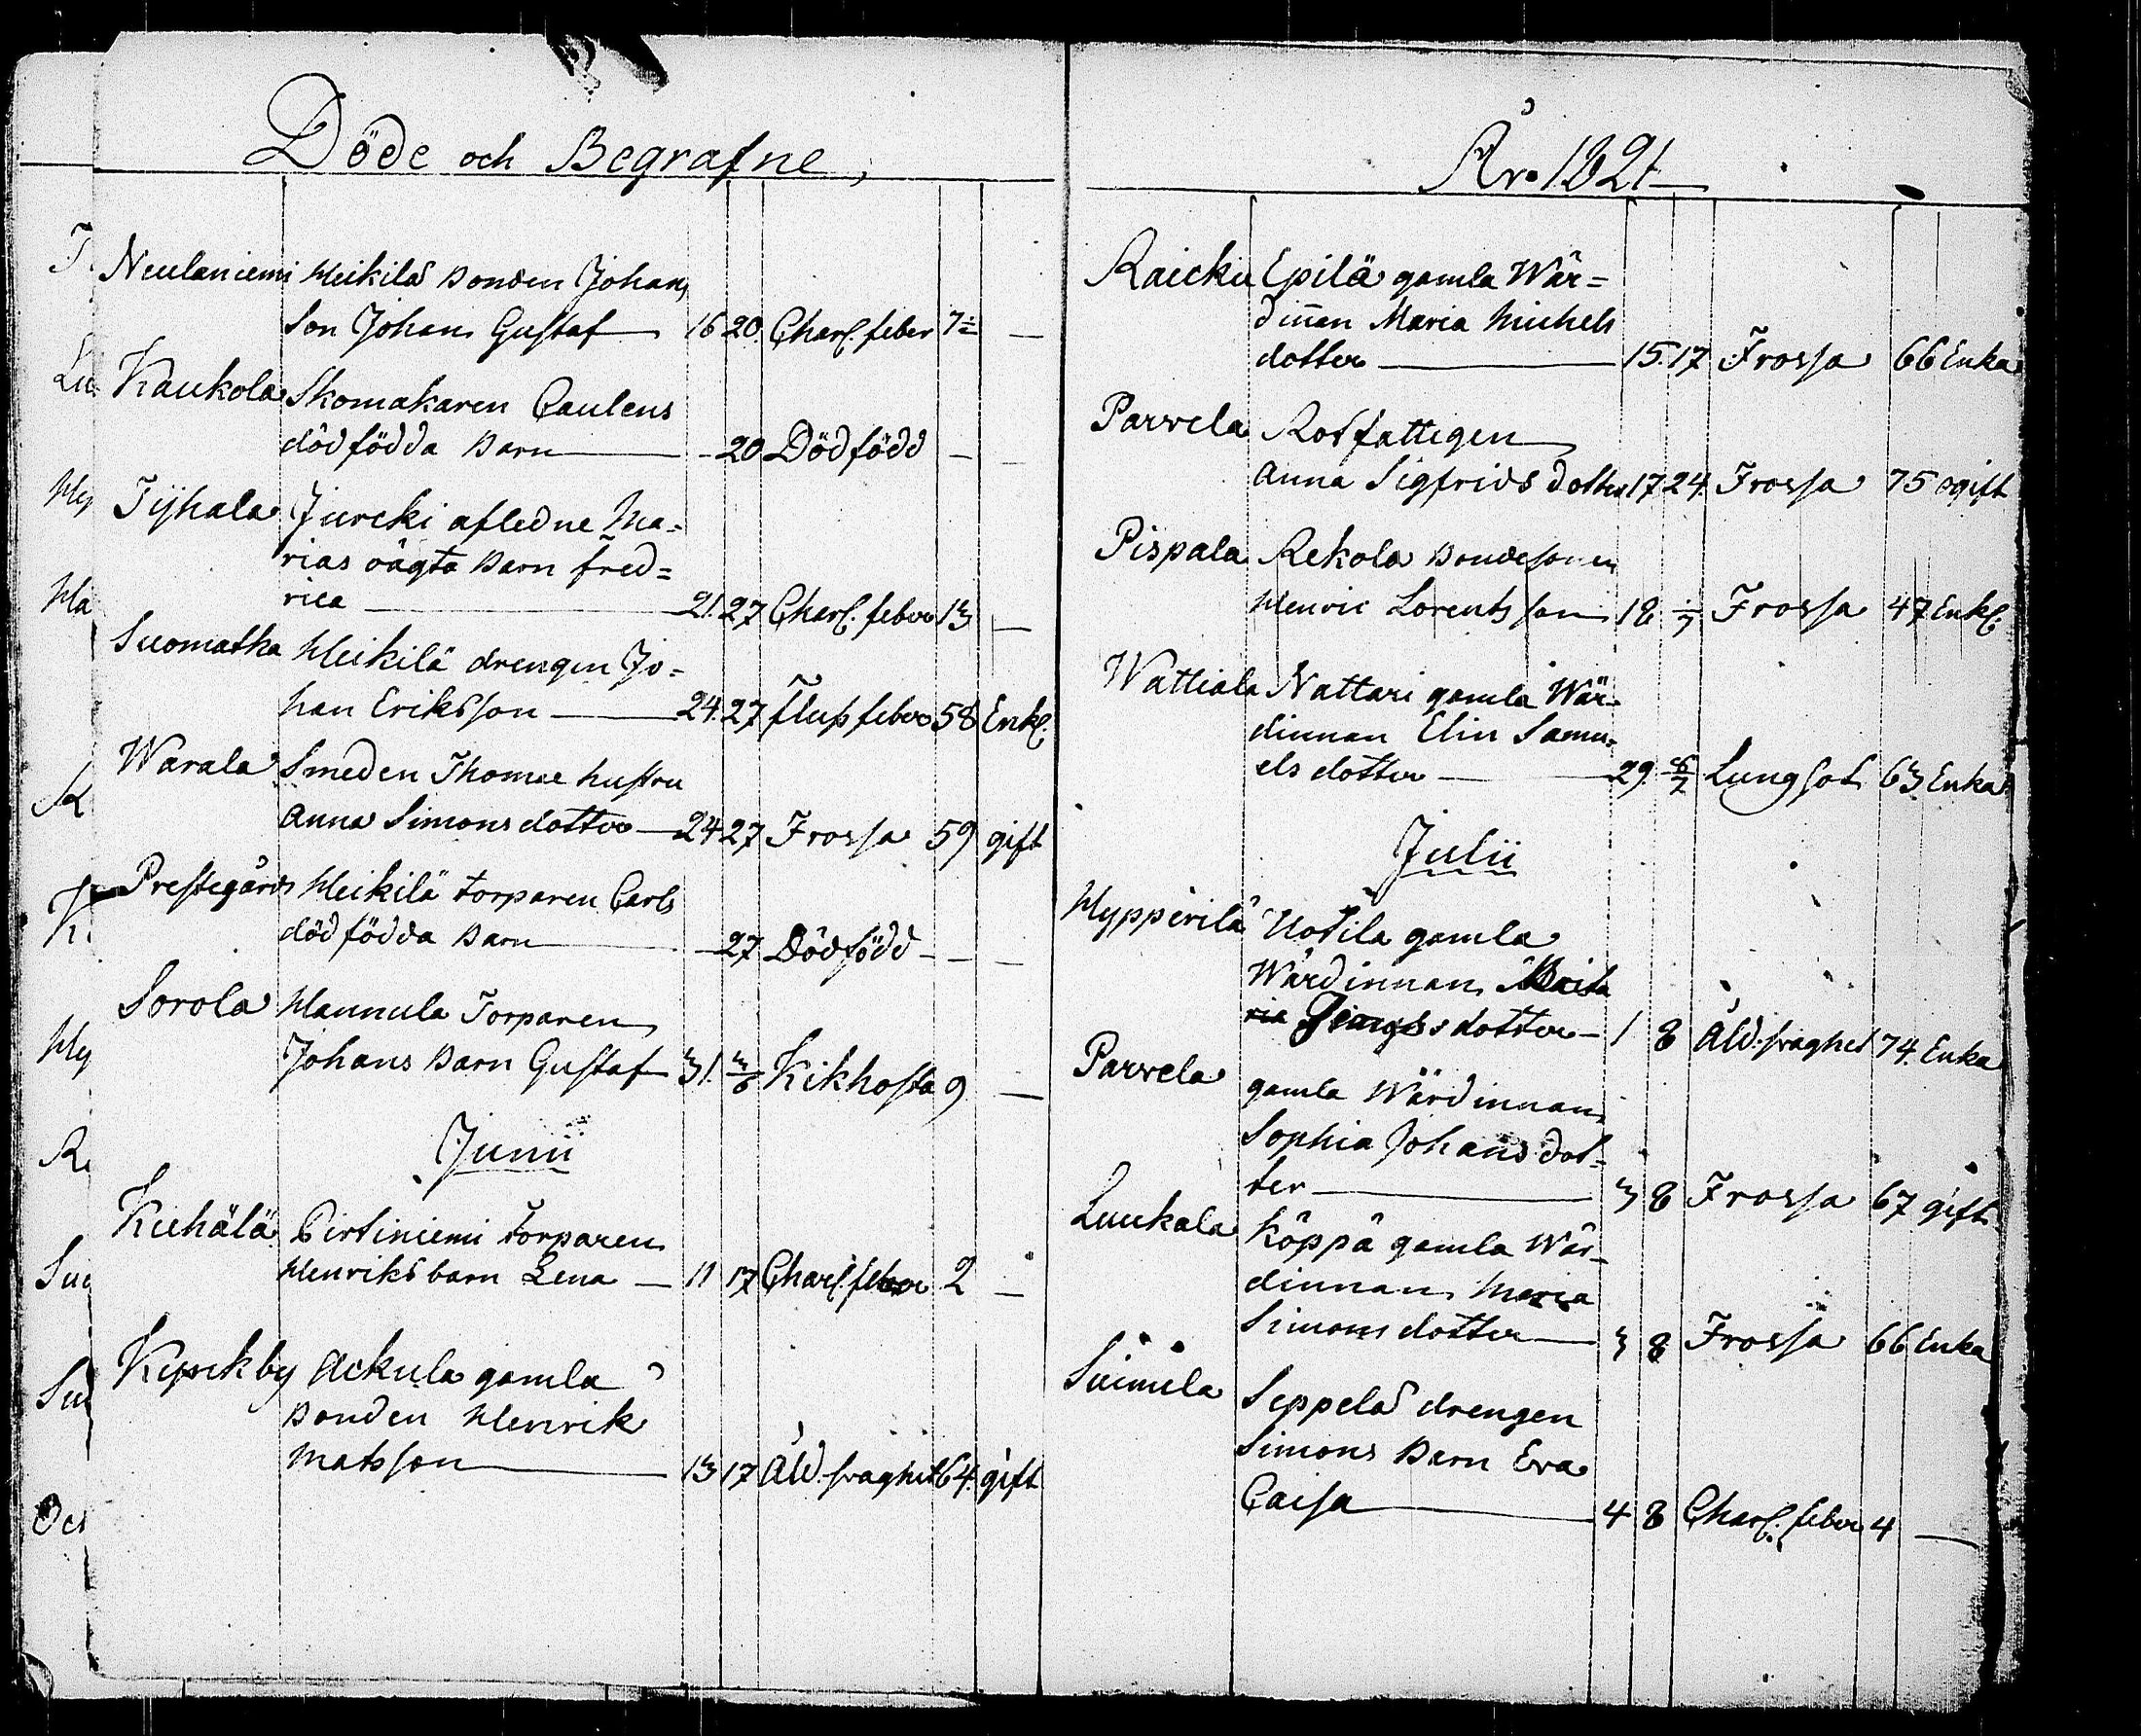 Döde och Begrafne,
Neulaniemi Heikilä Bonden Johans
Son Johan Gustaf 16 20. Charl. feber 7 —
Kaukola Skomakaren Paulens
dödfödda Barn — 20 Dödfödd — —
Tyhala Jurcki afledne Ma=
rias oägta Barn Fred=
rica 21. 27 Charl. feber 13 —
Suomatka Heikilä drengen Jo=
han Eriksson 24. 27 Flussfeber 58 Enkl.
Warala Smeden Thomae hustru
Anna Simonsdotter 24 27 Frossa 59 gift
Prestegårds Heikilä torparen Carls
dödfödda Barn — 27 Dödfödd — —
Sorola Hannula Torparen
Johans Barn Gustaf 31. 3/6 Kikhosta 9 —
Junii
Kuhälä Pirtiniemi torparen
Henriks barn Lena — 11 17 Charl. feber 2 —
Kyrckby Ackula gamla
Bonden Henrik
Matsson 13 17 Åld. svaghet 64. gift
År 1821
Raicku Epilä gamla Wär=
dinnan Maria Michels
dotter 15. 17 Frossa 66 Enka
Parvela Rotfattigen
Anna Sigfrids dotter 17 24. Frossa 75 ogift
Pispala Rekola Bondesonen
Henric Lorentsson 18 1/7 Frossa 47 Enkl.
Wattiala Nattari gamla Wär=
dinnan Elin Samu=
els dotter 29. 6/7 Lungsot 63 Enka
Julii
Hypperilä Uotila gamla
Wärdinnan
dotter — 1 8 Åld. svaghet 74. Enka
Parvela gamla Wärdinnan
Sophia Johans dot=
ter 3 8 Frossa 67 gift
Luukala Köppä gamla Wär=
dinnan Maria
Simonsdotter 3 8 Frossa 66 Enka
Suimila Seppelä drengen
Simons Barn Eva
Caisa 4 8 Charl. feber 4 —